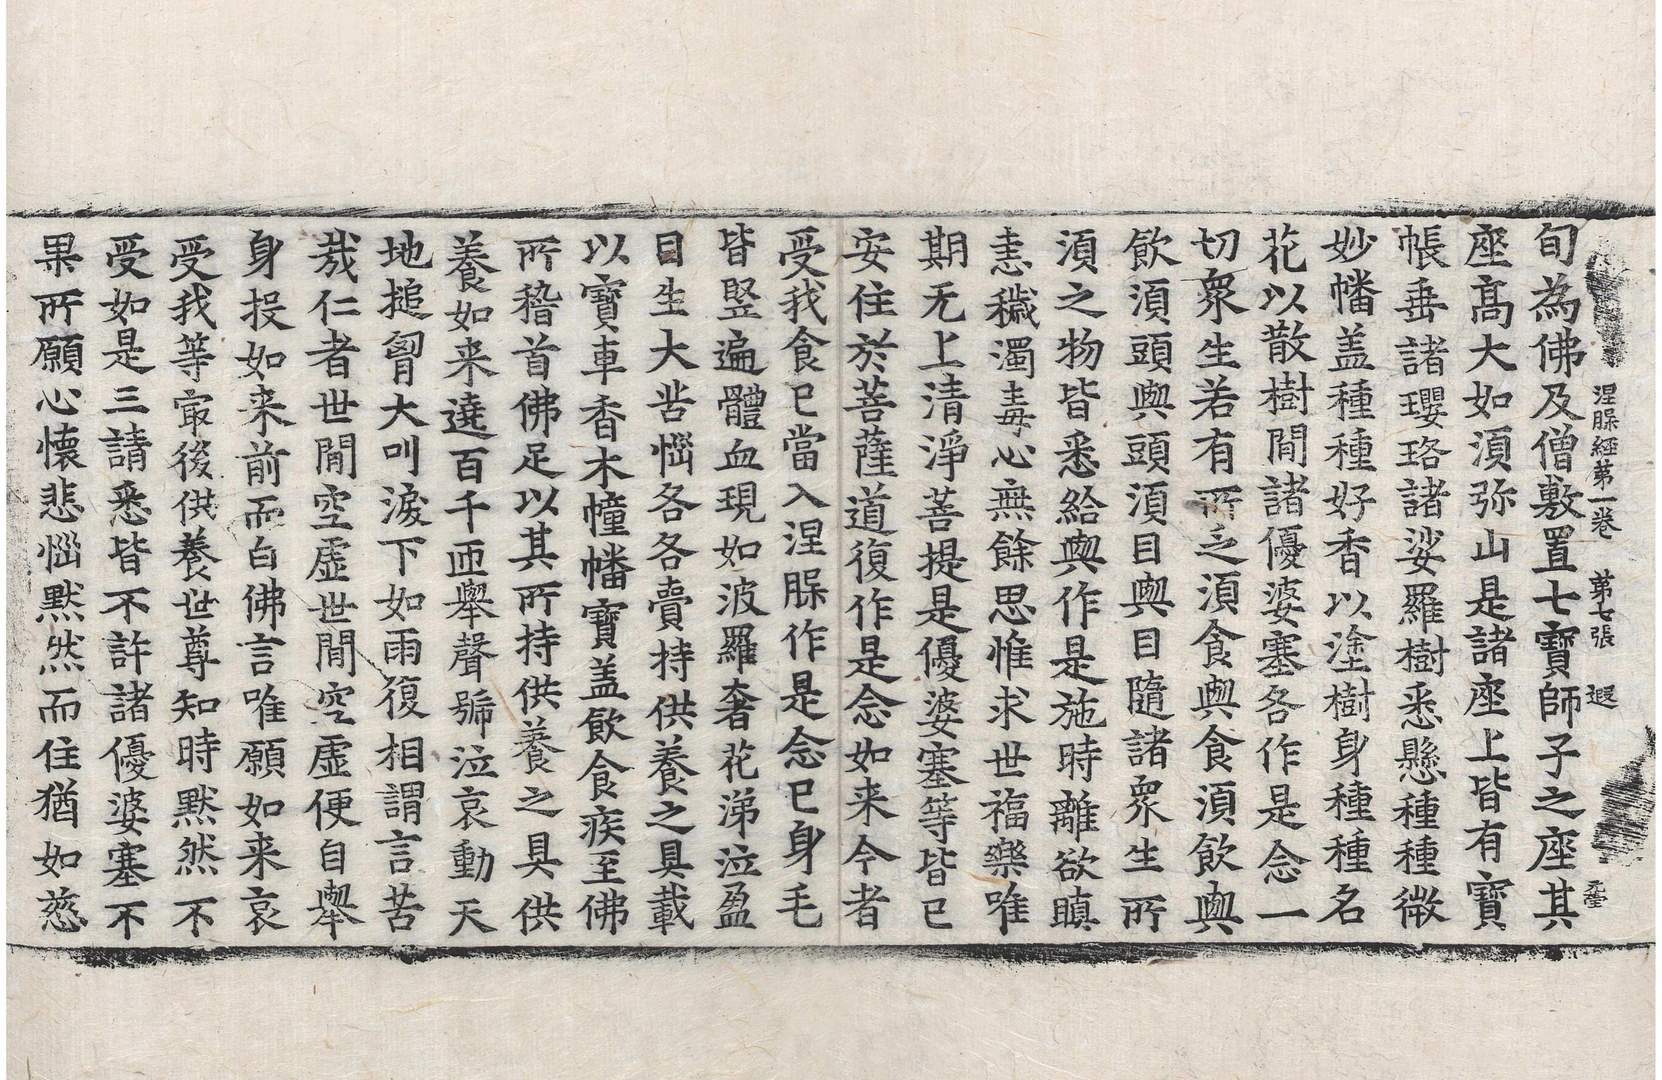 涅槃經第一卷　第七張　遐
旬為佛及僧敷置七寶師子之座其
座高大如須弥山是諸座上皆有寶
帳垂諸瓔珞諸娑羅樹悉懸種種微
妙幡盖種種好香以塗樹身種種名
花以散樹間諸優婆塞各作是念一
切衆生若有所乏須食與食須飲與
飲須頭與頭須目與目隨諸衆生所
須之物皆悉給與作是施時離欲瞋
恚穢濁毒心無餘思惟求世福樂唯
期无上清淨菩提是優婆塞等皆已
安住於菩薩道復作是念如来今者
受我食已當入涅槃作是念已身毛
皆竪遍體血現如波羅奢花涕泣盈
目生大苦惱各各賣持供養之具載
以寶車香木幢幡寶盖飲食疾至佛
所稽首佛足以其所持供養之具供
養如来遶百千匝舉聲號泣哀動天
地搥胷大叫淚下如雨復相謂言苦
哉仁者世間空虛世間空虛便自舉
身投如来前而白佛言唯願如来哀
受我等㝡後供養世尊知時默然不
受如是三請悉皆不許諸優婆塞不
果所願心懷悲惱默然而住猶如慈